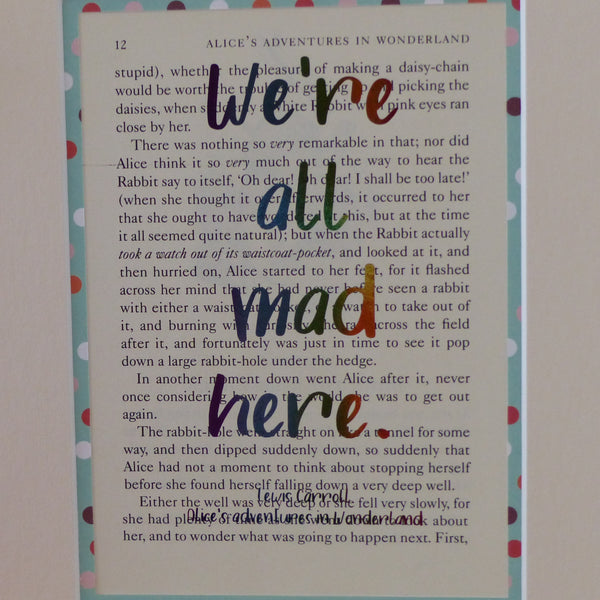 12 ALICE'S ADVENTURES IN WONDERLAND
stupid), whether the pleasure of making a daisy-chain
would be worth the trouble of getting up and picking the
daisies, when suddenly a White Rabbit with pink eyes ran
close by her.
There was nothing so very remarkable in that; nor did
Alice think it so very much out of the way to hear the
Rabbit say to itself, 'Oh dear! Oh dear! I shall be too late!'
(when she thought it over afterwards, it occurred to her
that she ought to have wondered at this, but at the time
it all seemed quite natural); but when the Rabbit actually
took a watch out of its waistcoat-pocket, and looked at it, and
then hurried on, Alice started to her feet, for it flashed
across her mind that she had never before seen a rabbit
with either a waistcoat-pocket, or a watch to take out of
it, and burning with curiosity, she ran across the field
after it, and fortunately was just in time to see it pop
down a large rabbit-hole under the hedge.
In another moment down went Alice after it, never
once considering how in the world she was to get out
again.
The rabbit-hole went straight on like a tunnel for some
way, and then dipped suddenly down, so suddenly that
Alice had not a moment to think about stopping herself
before she found herself falling down a very deep well.
Either the well was very deep, or she fell very slowly, for
she had plenty of time as she went down to look about
her, and to wonder what was going to happen next. First,
We're
all
mad
here.
Lewis Carroll
Alice's adventures in Wonderland